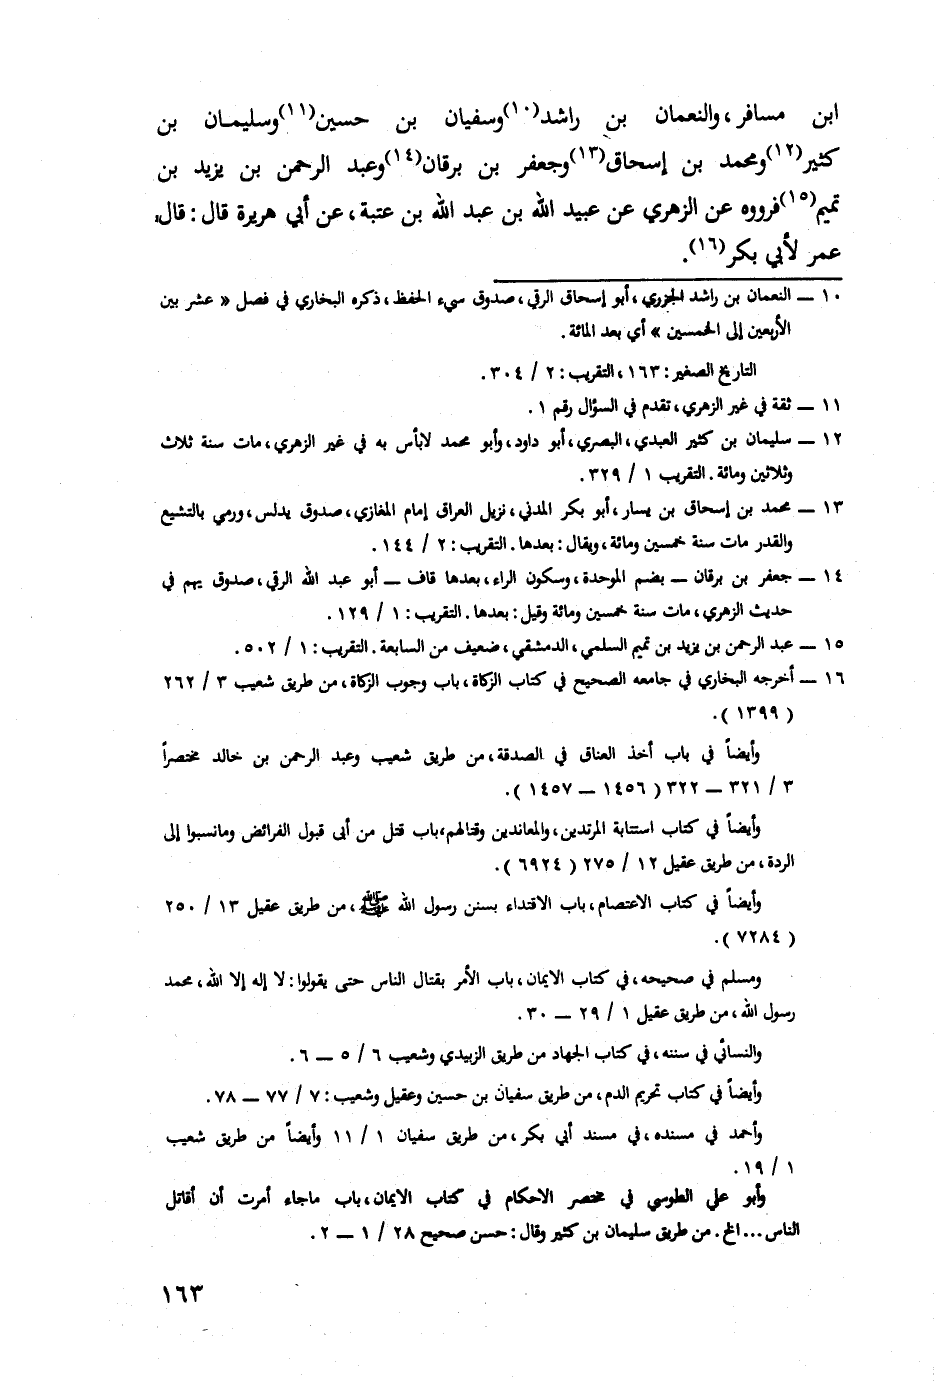 ابن مسافر، والنعمان بن راشد(١٠) وسفيان بن حسين(١١) وسليمان بن
كثير(١٢) ومحمد بن إسحاق(١٣) وجعفر بن برقان(١٤) وعبد الرحمن بن يزيد بن
تميم(١٥) فرووه عن الزهري عن عبيد الله بن عبد الله بن عتبة، عن أبي هريرة قال : قال
عمر لأبي بكر(١٦).
١٠ ــ النعمان بن راشد الجزري، أبو إسحاق الرقي، صدوق سيء الحفظ، ذكره البخاري في فصل « عشر بين
الأربعين إلى الخمسين » أي بعد المائة .
التاريخ الصغير : ١٦٣، التقريب : ٢ / ٣٠٤ .
١١ ــ ثقة في غير الزهري، تقدم في السؤال رقم ١ .
١٢ ــ سليمان بن كثير العبدي، البصري، أبو داود، وأبو محمد لابأس به في غير الزهري، مات سنة ثلاث
وثلاثين ومائة . التقريب ١ / ٣٢٩ .
١٣ ــ محمد بن إسحاق بن يسار، أبو بكر المدني، نزيل العراق إمام المغازي، صدوق يدلس، ورمي بالتشيع
والقدر مات سنة خمسين ومائة، ويقال : بعدها . التقريب : ٢ / ١٤٤ .
١٤ ــ جعفر بن برقان ــ بضم الموحدة، وسكون الراء، بعدها قاف ــ أبو عبد الله الرقي، صدوق يهم في
حديث الزهري، مات سنة خمسين ومائة وقيل : بعدها . التقريب : ١ / ١٢٩ .
١٥ ــ عبد الرحمن بن يزيد بن تميم السلمي، الدمشقي، ضعيف من السابعة . التقريب : ١ / ٥٠٢ .
١٦ ــ أخرجه البخاري في جامعه الصحيح في كتاب الزكاة، باب وجوب الزكاة، من طريق شعيب ٣ / ٢٦٢
( ١٣٩٩ ) .
وأيضاً في باب أخذ العناق في الصدقة، من طريق شعيب وعبد الرحمن بن خالد مختصراً
٣ / ٣٢١ ــ ٣٢٢ ( ١٤٥٦ ــ ١٤٥٧ ) .
وأيضاً في كتاب استتابة المرتدين، والمعاندين وقتالهم، باب قتل من أبى قبول الفرائض ومانسبوا إلى
الردة، من طريق عقيل ١٢ / ٢٧٥ ( ٦٩٢٤ ) .
وأيضاً في كتاب الاعتصام، باب الاقتداء بسنن رسول الله ﷺ، من طريق عقيل ١٣ / ٢٥٠
( ٧٢٨٤ ) .
ومسلم في صحيحه، في كتاب الايمان، باب الأمر بقتال الناس حتى يقولوا : لا إله إلا الله، محمد
رسول الله، من طريق عقيل ١ / ٢٩ ــ ٣٠ .
والنسائي في سننه، في كتاب الجهاد من طريق الزبيدي وشعيب ٦ / ٥ ــ ٦ .
وأيضاً في كتاب تحريم الدم، من طريق سفيان بن حسين وعقيل وشعيب : ٧ / ٧٧ ــ ٧٨ .
وأحمد في مسنده، في مسند أبي بكر، من طريق سفيان ١ / ١١ وأيضاً من طريق شعيب
١ / ١٩ .
وأبو علي الطوسي في مختصر الاحكام في كتاب الايمان، باب ماجاء أمرت أن أقاتل
الناس ... الخ . من طريق سليمان بن كثير وقال : حسن صحيح ٢٨ / ١ ــ ٢ .
١٦٣